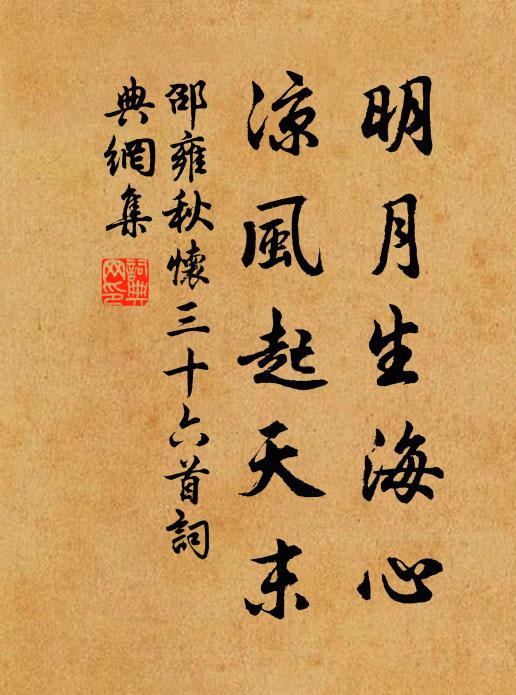 明月生海心
涼風起天末
邵雍秋懷三十六首詞
典網集
詞典網印